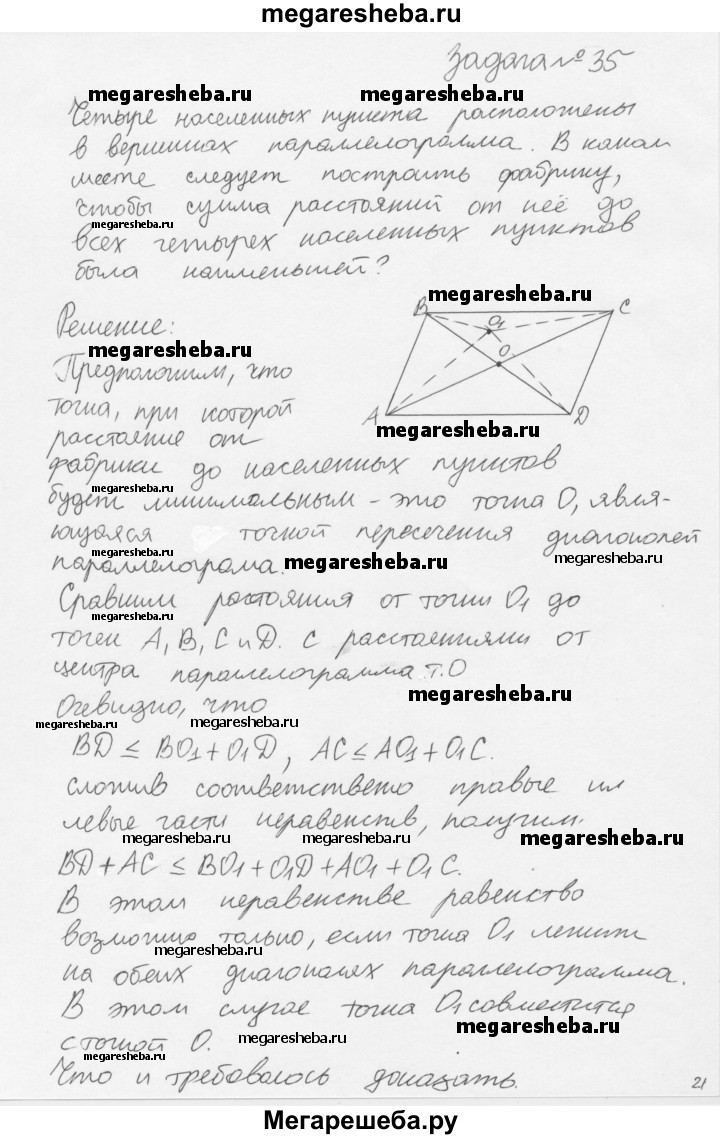 megaresheba.ru
Задача № 35
megaresheba.ru megaresheba.ru
Четыре населенных пункта расположены
в вершинах параллелограмма. В каком
месте следует построить фабрику,
чтобы сумма расстояний от неё до
megaresheba.ru
всех четырех населенных пунктов
была наименьшей?
megaresheba.ru
B O₁ C
Решение:
megaresheba.ru
O
Предположим, что
точка, при которой
A D
megaresheba.ru
расстояние от
фабрики до населенных пунктов
megaresheba.ru
будет минимальным - это точка O, явля-
ющаяся точкой пересечения диагоналей
megaresheba.ru megaresheba.ru megaresheba.ru
параллелограма.
Сравним расстояния от точки O₁ до
точек A, B, C и D. с расстояниями от
центра параллелограмма т.O
megaresheba.ru
Очевидно, что
megaresheba.ru megaresheba.ru
BD ≤ BO₁ + O₁D, AC ≤ AO₁ + O₁C.
сложив соответствено правые ил
левые части неравенств, получим.
megaresheba.ru megaresheba.ru megaresheba.ru
BD + AC ≤ BO₁ + O₁D + AO₁ + O₁C.
В этом неравенстве равенство
возможно только, если точка O₁ лежит
megaresheba.ru
на обеих диагоналях параллелограмма.
В этом случае точка O₁ совместится
megaresheba.ru
с точкой O.
megaresheba.ru megaresheba.ru
Что и требовалось доказать.
21
Мегарешеба.ру